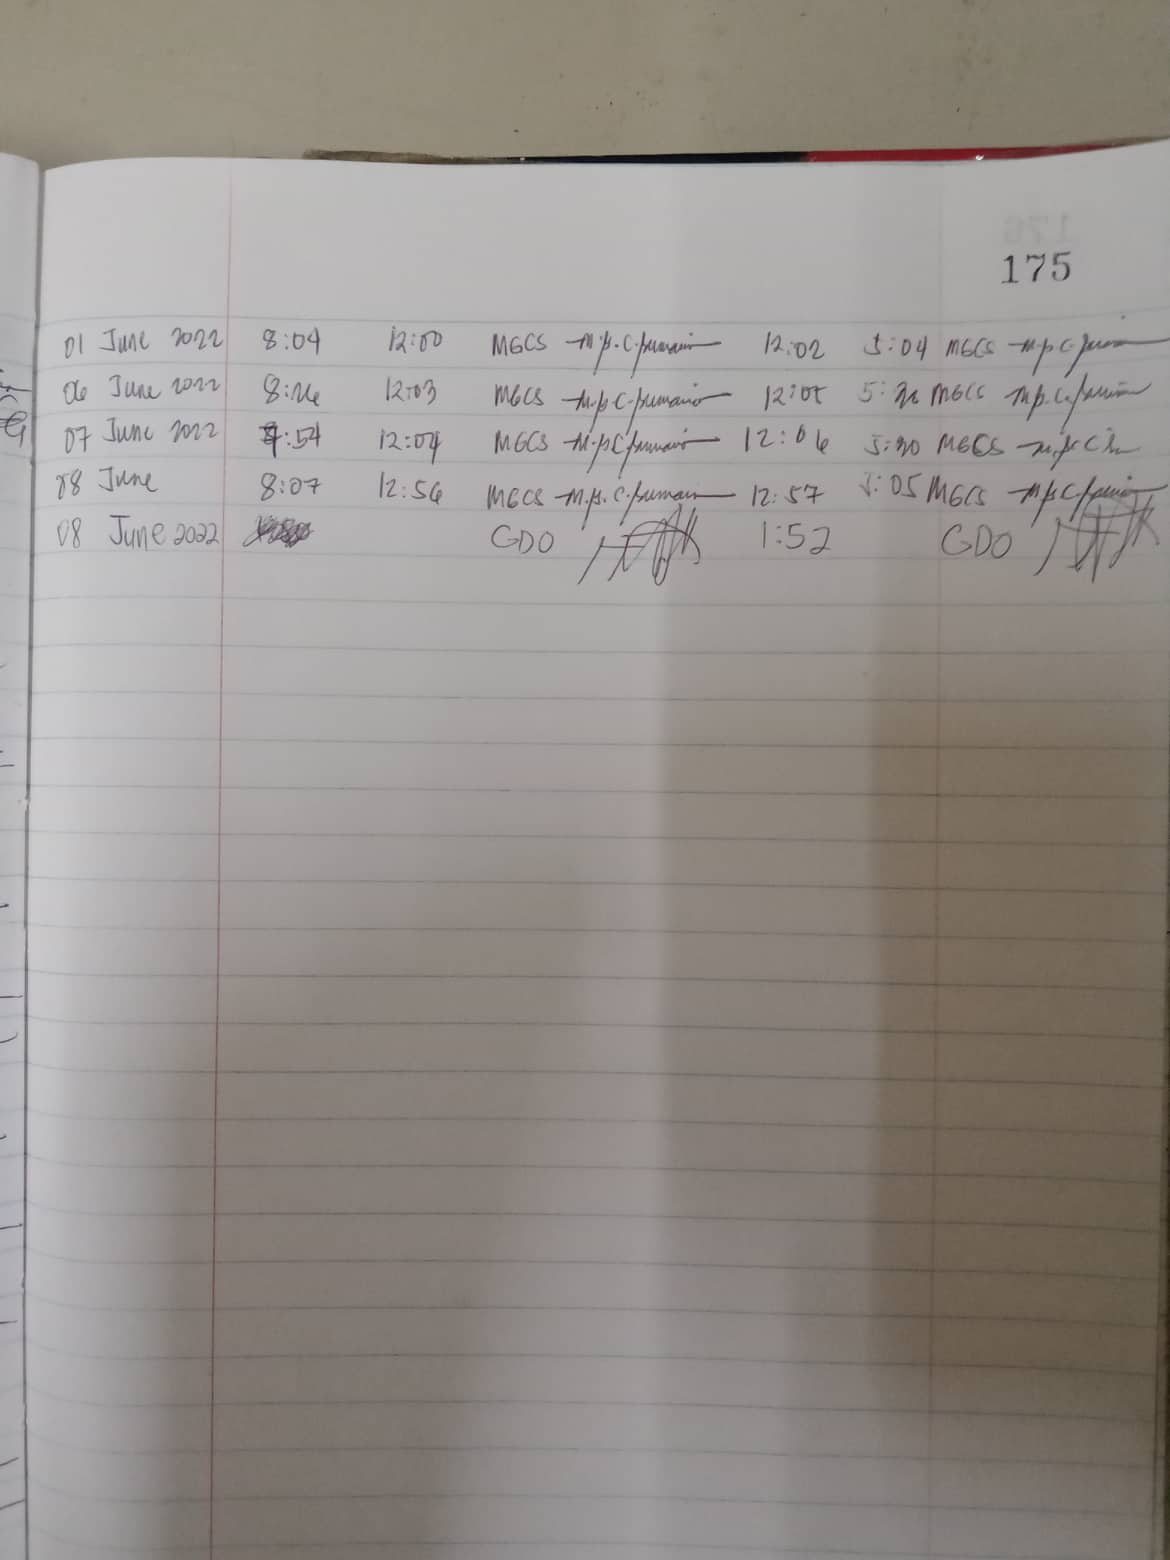 175
01 June 2022 8:04 12:00 MGCS 12:02 5:04 MGCS
06 June 2022 8:26 12:03 MGCS 12:05 MGCS
07 June 2022 7:54 12:04 MGCS 12:06 5:20 MGCS
08 June 8:07 12:56 MGCS 12:57 5:05 MGCS
08 June 2022 GDO 1:52 GDO